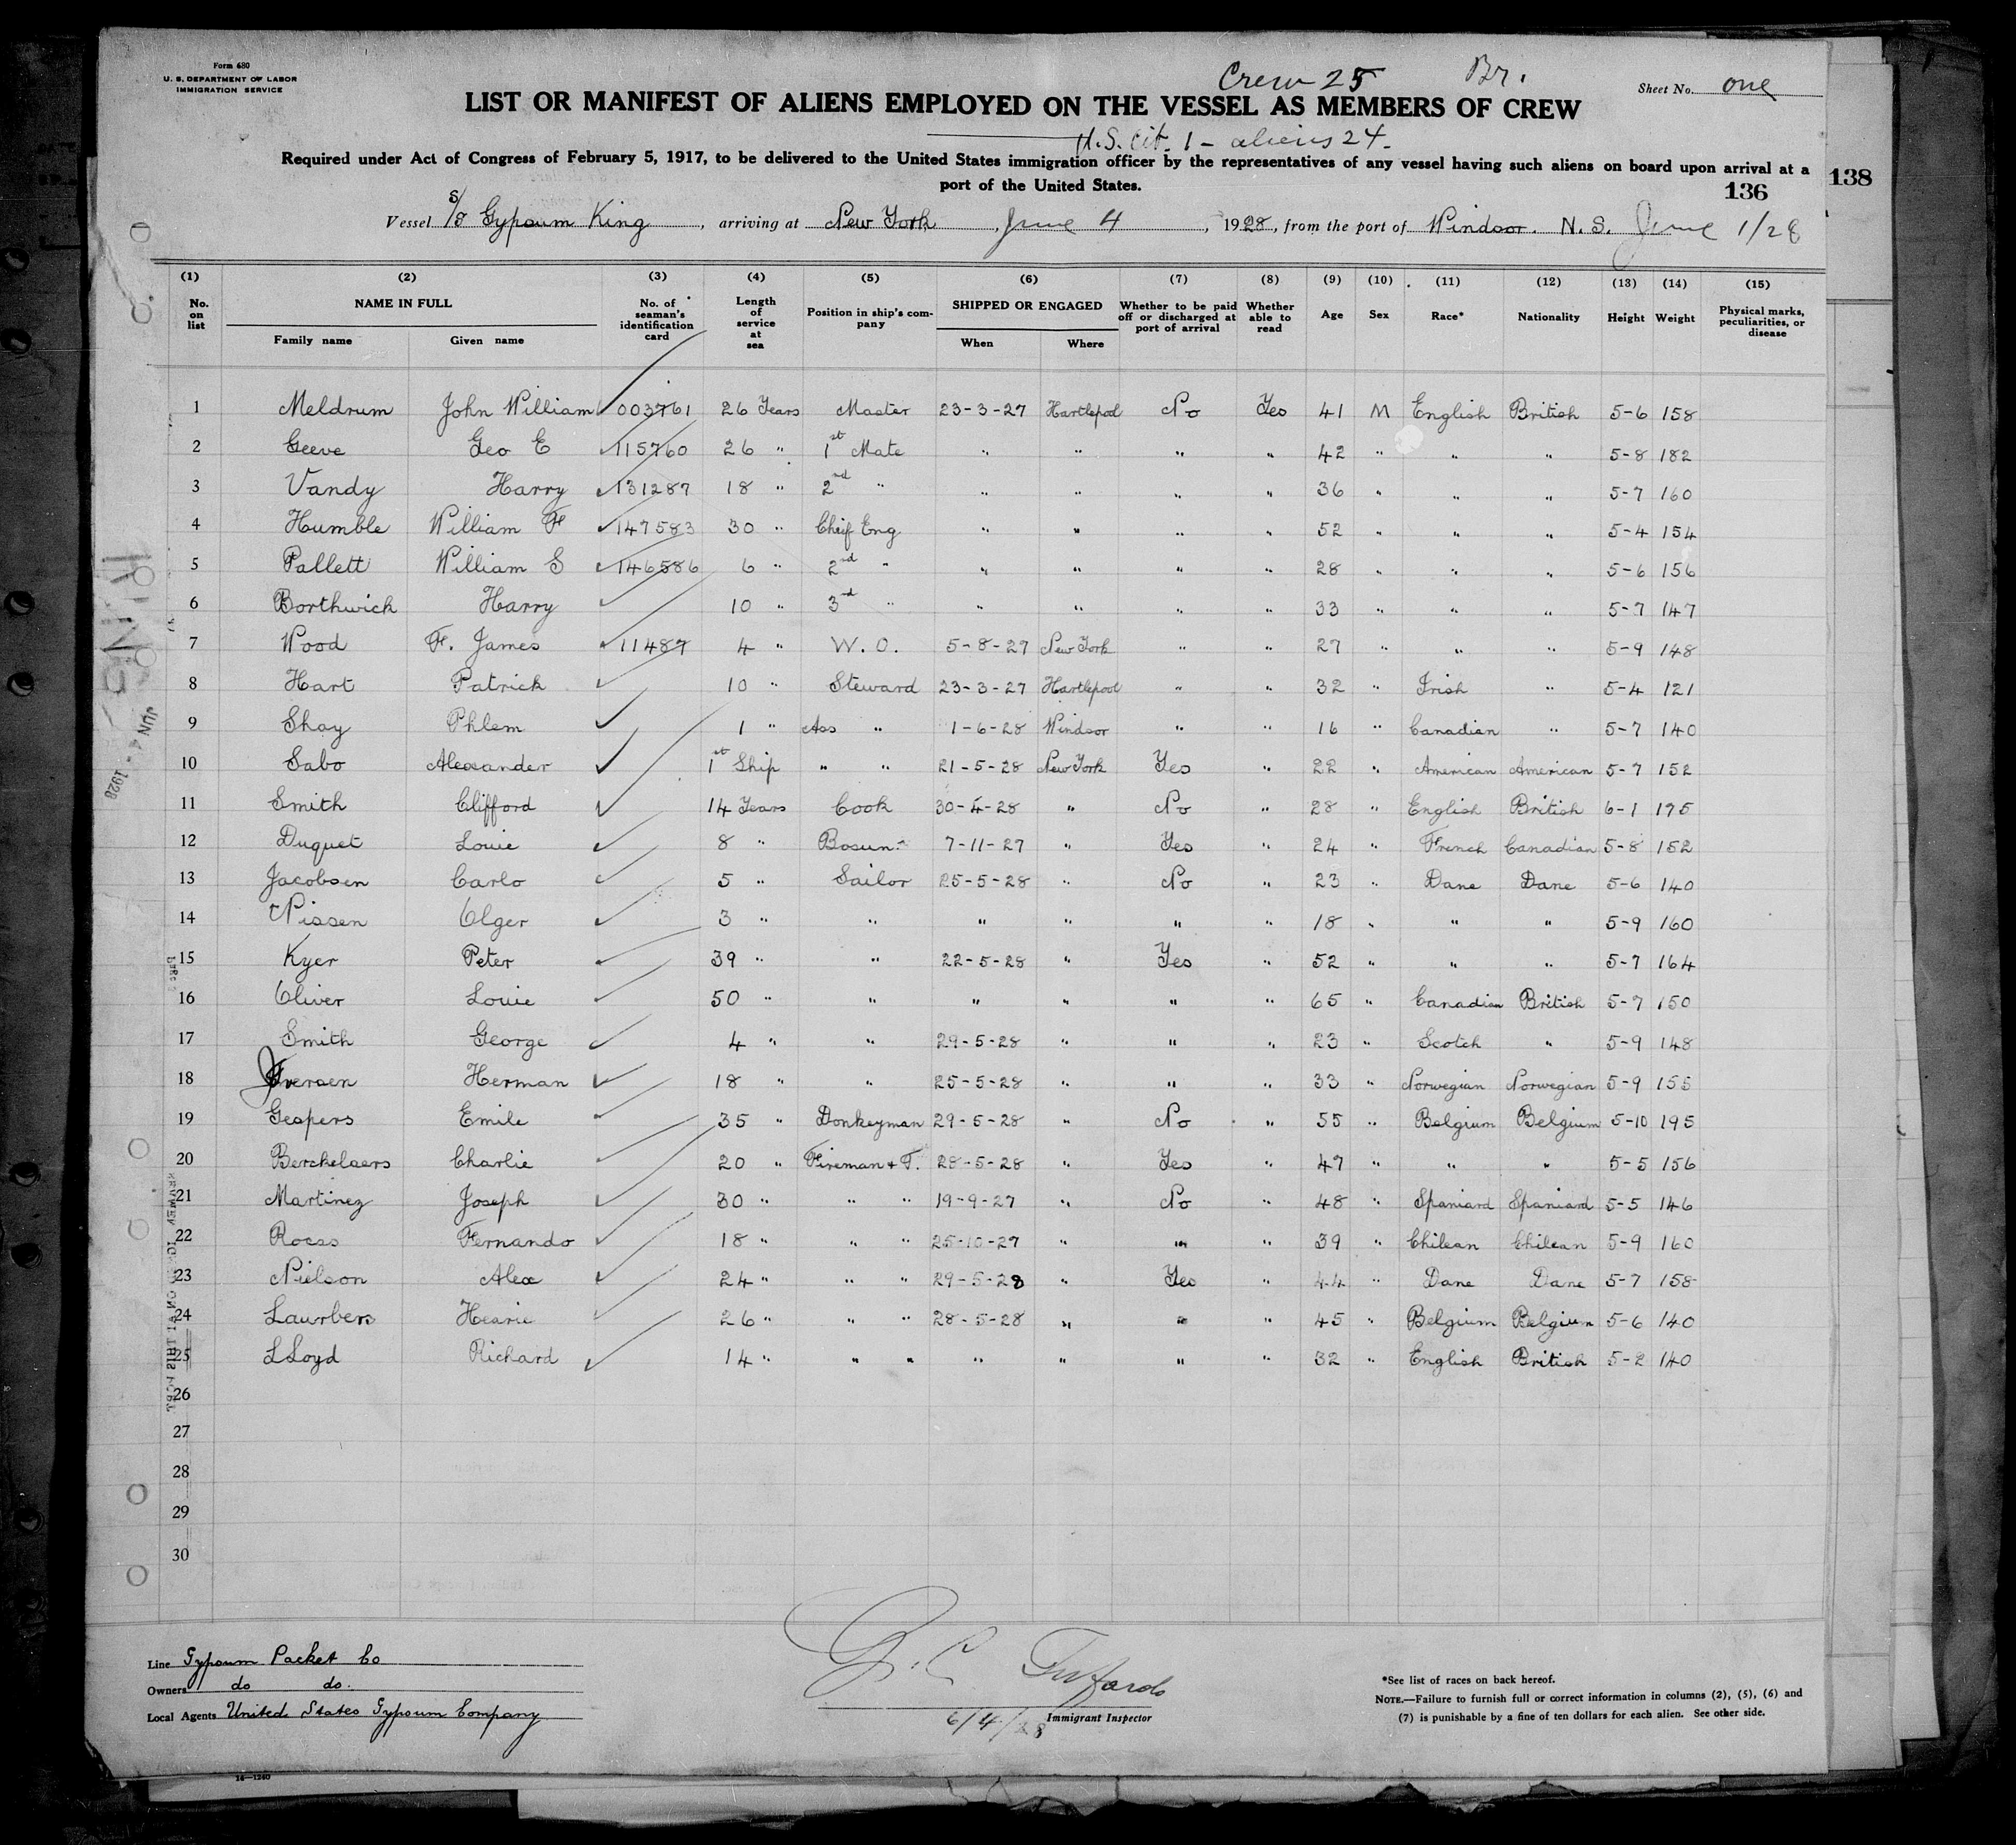 Form 680
U. S. DEPARTMENT OF LABOR
IMMIGRATION SERVICE
Crew 25 Br.
Sheet No. one
LIST OR MANIFEST OF ALIENS EMPLOYED ON THE VESSEL AS MEMBERS OF CREW
U.S. Cit. 1 - aliens 24.
Required under Act of Congress of February 5, 1917, to be delivered to the United States immigration officer by the representatives of any vessel having such aliens on board upon arrival at a
port of the United States.
136
138
Vessel S/S Gypsum King, arriving at New York, June 4, 1928, from the port of Windsor. N. S. June 1/28
(1) (2) (3) (4) (5) (6) (7) (8) (9) (10) (11) (12) (13) (14) (15)
No. on list NAME IN FULL Family name Given name No. of seaman's identification card Length of service at sea Position in ship's company SHIPPED OR ENGAGED When Where Whether to be paid off or discharged at port of arrival Whether able to read Age Sex Race* Nationality Height Weight Physical marks, peculiarities, or disease
1 Meldrum John William 003761 26 Years Master 23-3-27 Hartlepool No Yes 41 M English British 5-6 158
2 Geeve Geo E 115760 26 " 1st Mate " " " " 42 " " " 5-8 182
3 Vandy Harry 131287 18 " 2nd " " " " " 36 " " " 5-7 160
4 Humble William F 147583 30 " Cheif Eng " " " " 52 " " " 5-4 154
5 Pallett William S 146586 6 " 2nd " " " " " 28 " " " 5-6 156
6 Borthwick Harry 10 " 3rd " " " " " 33 " " " 5-7 147
7 Wood F. James 11487 4 " W. O. 5-8-27 New York " " 27 " " " 5-9 148
8 Hart Patrick 10 " Steward 23-3-27 Hartlepool " " 32 " Irish " 5-4 121
9 Shay Phlem 1 " Ass " 1-6-28 Windsor " " 16 " Canadian " 5-7 140
10 Sabo Alexander 1st Ship " " 21-5-28 New York Yes " 22 " American American 5-7 152
11 Smith Clifford 14 Years Cook 30-4-28 " No " 28 " English British 6-1 175
12 Duquet Louie 8 " Bosun 7-11-27 " Yes " 24 " French Canadian 5-8 152
13 Jacobsen Carlo 5 " Sailor 25-5-28 " No " 23 " Dane Dane 5-6 140
14 Nissen Olger 3 " " " " " " 18 " " " 5-9 160
15 Kyer Peter 39 " " 22-5-28 " Yes " 52 " " " 5-7 164
16 Oliver Louie 50 " " " " " " 65 " Canadian British 5-7 150
17 Smith George 4 " " 29-5-28 " " " 23 " Scotch " 5-9 148
18 Iversen Herman 18 " " 25-5-28 " " " 33 " Norwegian Norwegian 5-9 155
19 Gespers Emile 35 " Donkeyman 29-5-28 " No " 55 " Belgium Belgium 5-10 195
20 Berckelaers Charlie 20 " Fireman + T. 28-5-28 " Yes " 47 " " " 5-5 156
21 Martinez Joseph 30 " " " 19-9-27 " No " 48 " Spaniard Spaniard 5-5 146
22 Rocss Fernando 18 " " " 25-10-27 " " " 39 " Chilean Chilean 5-9 160
23 Nielson Alex 24 " " " 29-5-28 " Yes " 44 " Dane Dane 5-7 158
24 Laurbers Hearie 26 " " " 28-5-28 " " " 45 " Belgium Belgium 5-6 140
25 LLoyd Richard 14 " " " " " " " 32 " English British 5-2 140
26
27
28
29
30
JUN 4 - 1928
Line Gypsum Packet Co
Owners do do.
Local Agents United States Gypsum Company
6/4/28
Immigrant Inspector
*See list of races on back hereof.
NOTE.—Failure to furnish full or correct information in columns (2), (5), (6) and
(7) is punishable by a fine of ten dollars for each alien. See other side.
14—1240